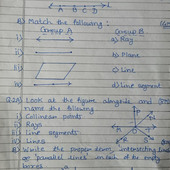 A B C D
B) Match the following :
Group A Group B
i) a) Ray
ii) b) Plane
iii) c) Line
iv) d) line segment
Q2A) Look at the figure alongside and
name the following
i) Collinear points
ii) Rays
iii) Line segments
iv) Lines
B) Write the proper term, 'intersecting lines'
or 'parallel lines' in each of the empty
boxes